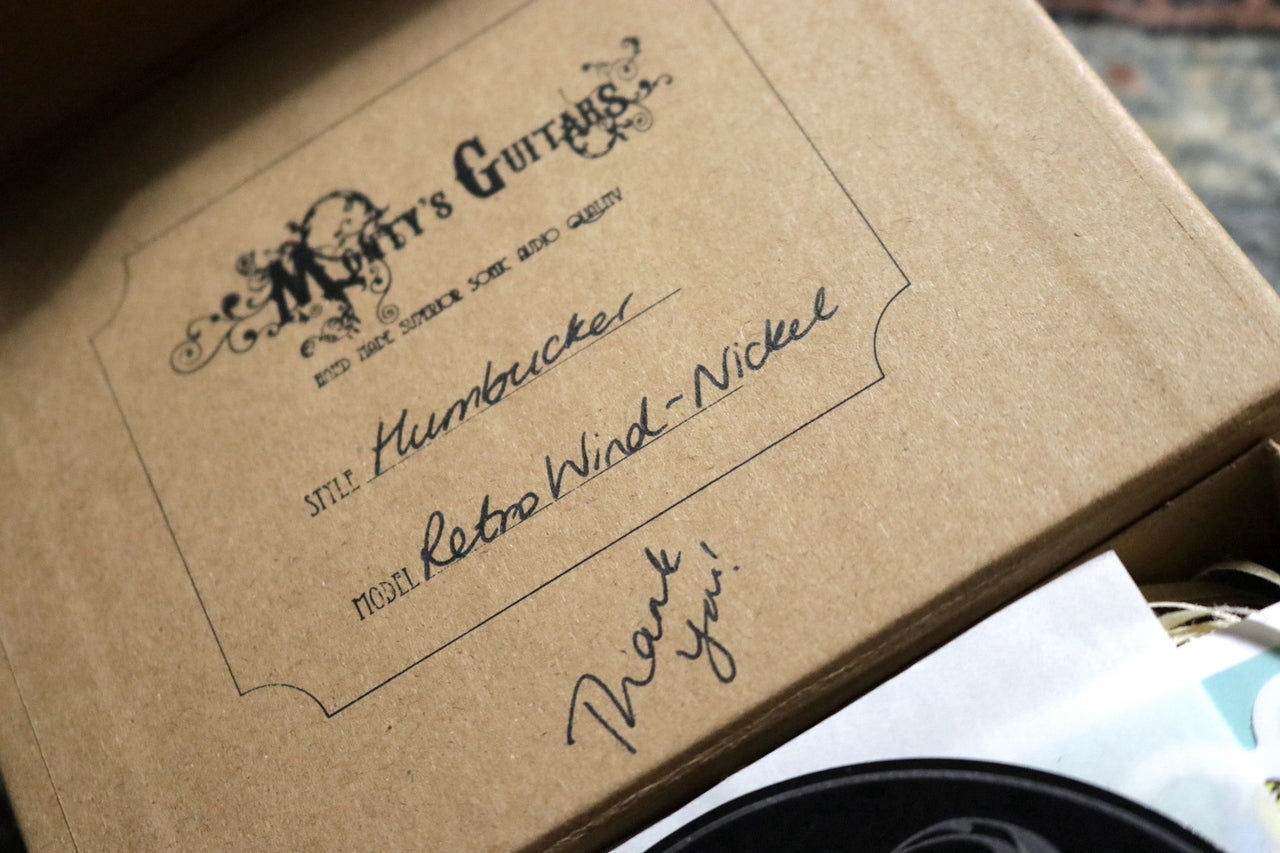 Monty's Guitars
HAND MADE SUPERIOR SONIC AUDIO QUALITY
STYLE Humbucker
MODEL Retro Wind - Nickel
Thank
you!